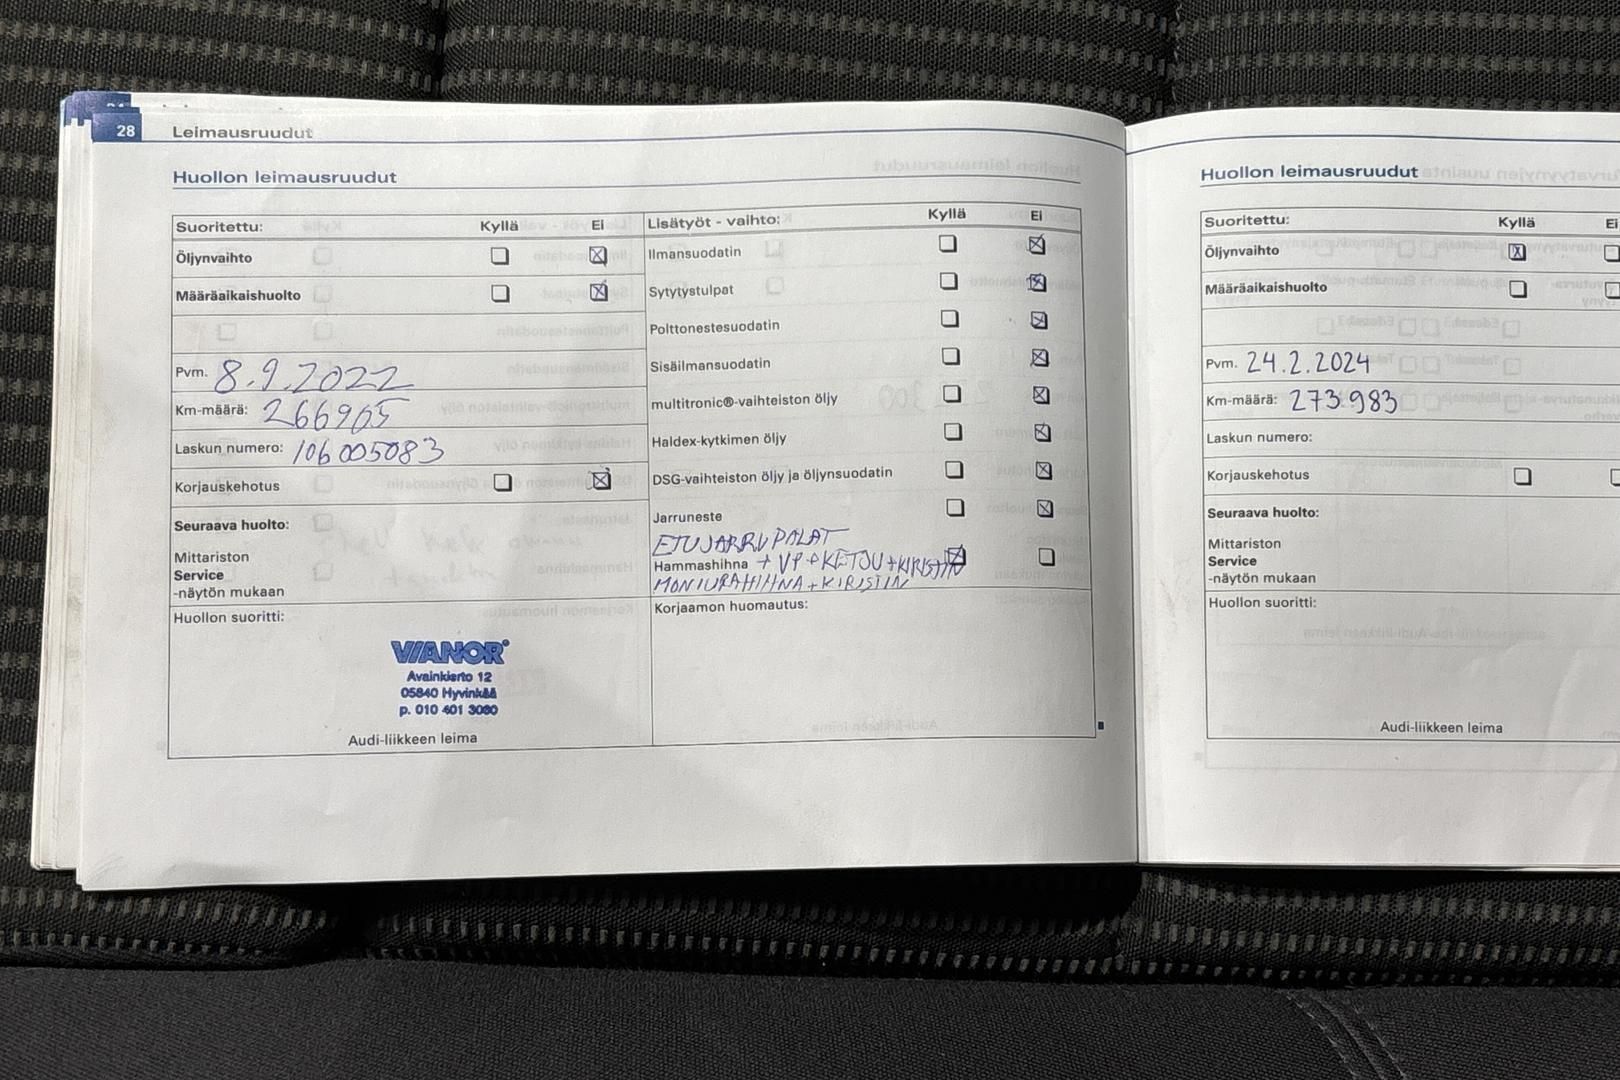 28 Leimausruudut
Huollon leimausruudut
Suoritettu: Kyllä Ei
Öljynvaihto
Määräaikaishuolto
Pvm. 8.9.2022
Km-määrä: 266905
Laskun numero: 106005083
Korjauskehotus
Seuraava huolto:
Mittariston
Service
-näytön mukaan
Huollon suoritti:
VIANOR
Avainkierto 12
05840 Hyvinkää
p. 010 401 3080
Audi-liikkeen leima
Lisätyöt - vaihto: Kyllä Ei
Ilmansuodatin
Sytytystulpat
Polttonestesuodatin
Sisäilmansuodatin
multitronic®-vaihteiston öljy
Haldex-kytkimen öljy
DSG-vaihteiston öljy ja öljynsuodatin
Jarruneste
ETUJARRUPALAT
Hammashihna + VP+KETJU+KIRISTIN
MONIURAHIHNA+KIRISTIN
Korjaamon huomautus:
Huollon leimausruudut
Suoritettu: Kyllä Ei
Öljynvaihto
Määräaikaishuolto
Pvm. 24.2.2024
Km-määrä: 273983
Laskun numero:
Korjauskehotus
Seuraava huolto:
Mittariston
Service
-näytön mukaan
Huollon suoritti:
Audi-liikkeen leima